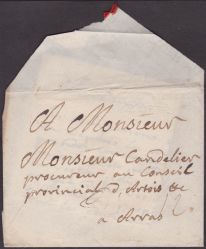 A Monsieur
Monsieur Candelier
procureur au Conseil
provincial d'Artois &c
a Arras